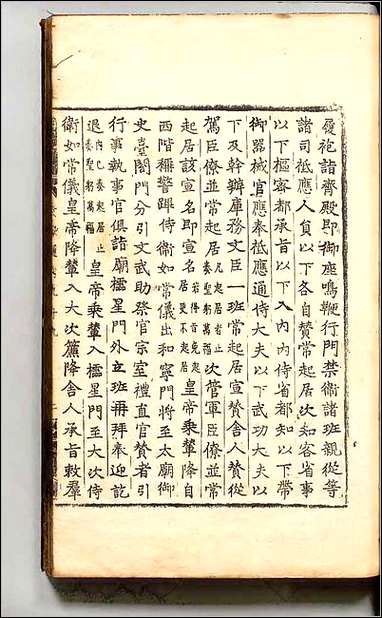 履袍詣齊殿即御座鳴鞭行門禁衛諸班親從等
諸司祗應人員以下各自贊常起居次知客省事
以下樞密都承旨以下入内内侍省都知以下帶
御器械官應奉祗應通侍大夫以下武功大夫以
下及幹辦庫務文臣一班常起居宣贊舍人贊從
駕臣僚並常起居凡起居者止奏聖躬萬福次管軍臣僚並常
起居該宣名即宣名若得旨免起居更不起居皇帝乘輦降自
西階稱警蹕侍衛如常儀出和寧門將至太廟御
史臺閤門分引文武助祭官宗室禮直官贊者引
行事執事官俱詣廟櫺星門外立班再拜奉迎訖
退内已奏起居止奏聖躬萬福皇帝乘輦入櫺星門至大次侍
衛如常儀皇帝降輦入大次簾降舍人承旨敕羣